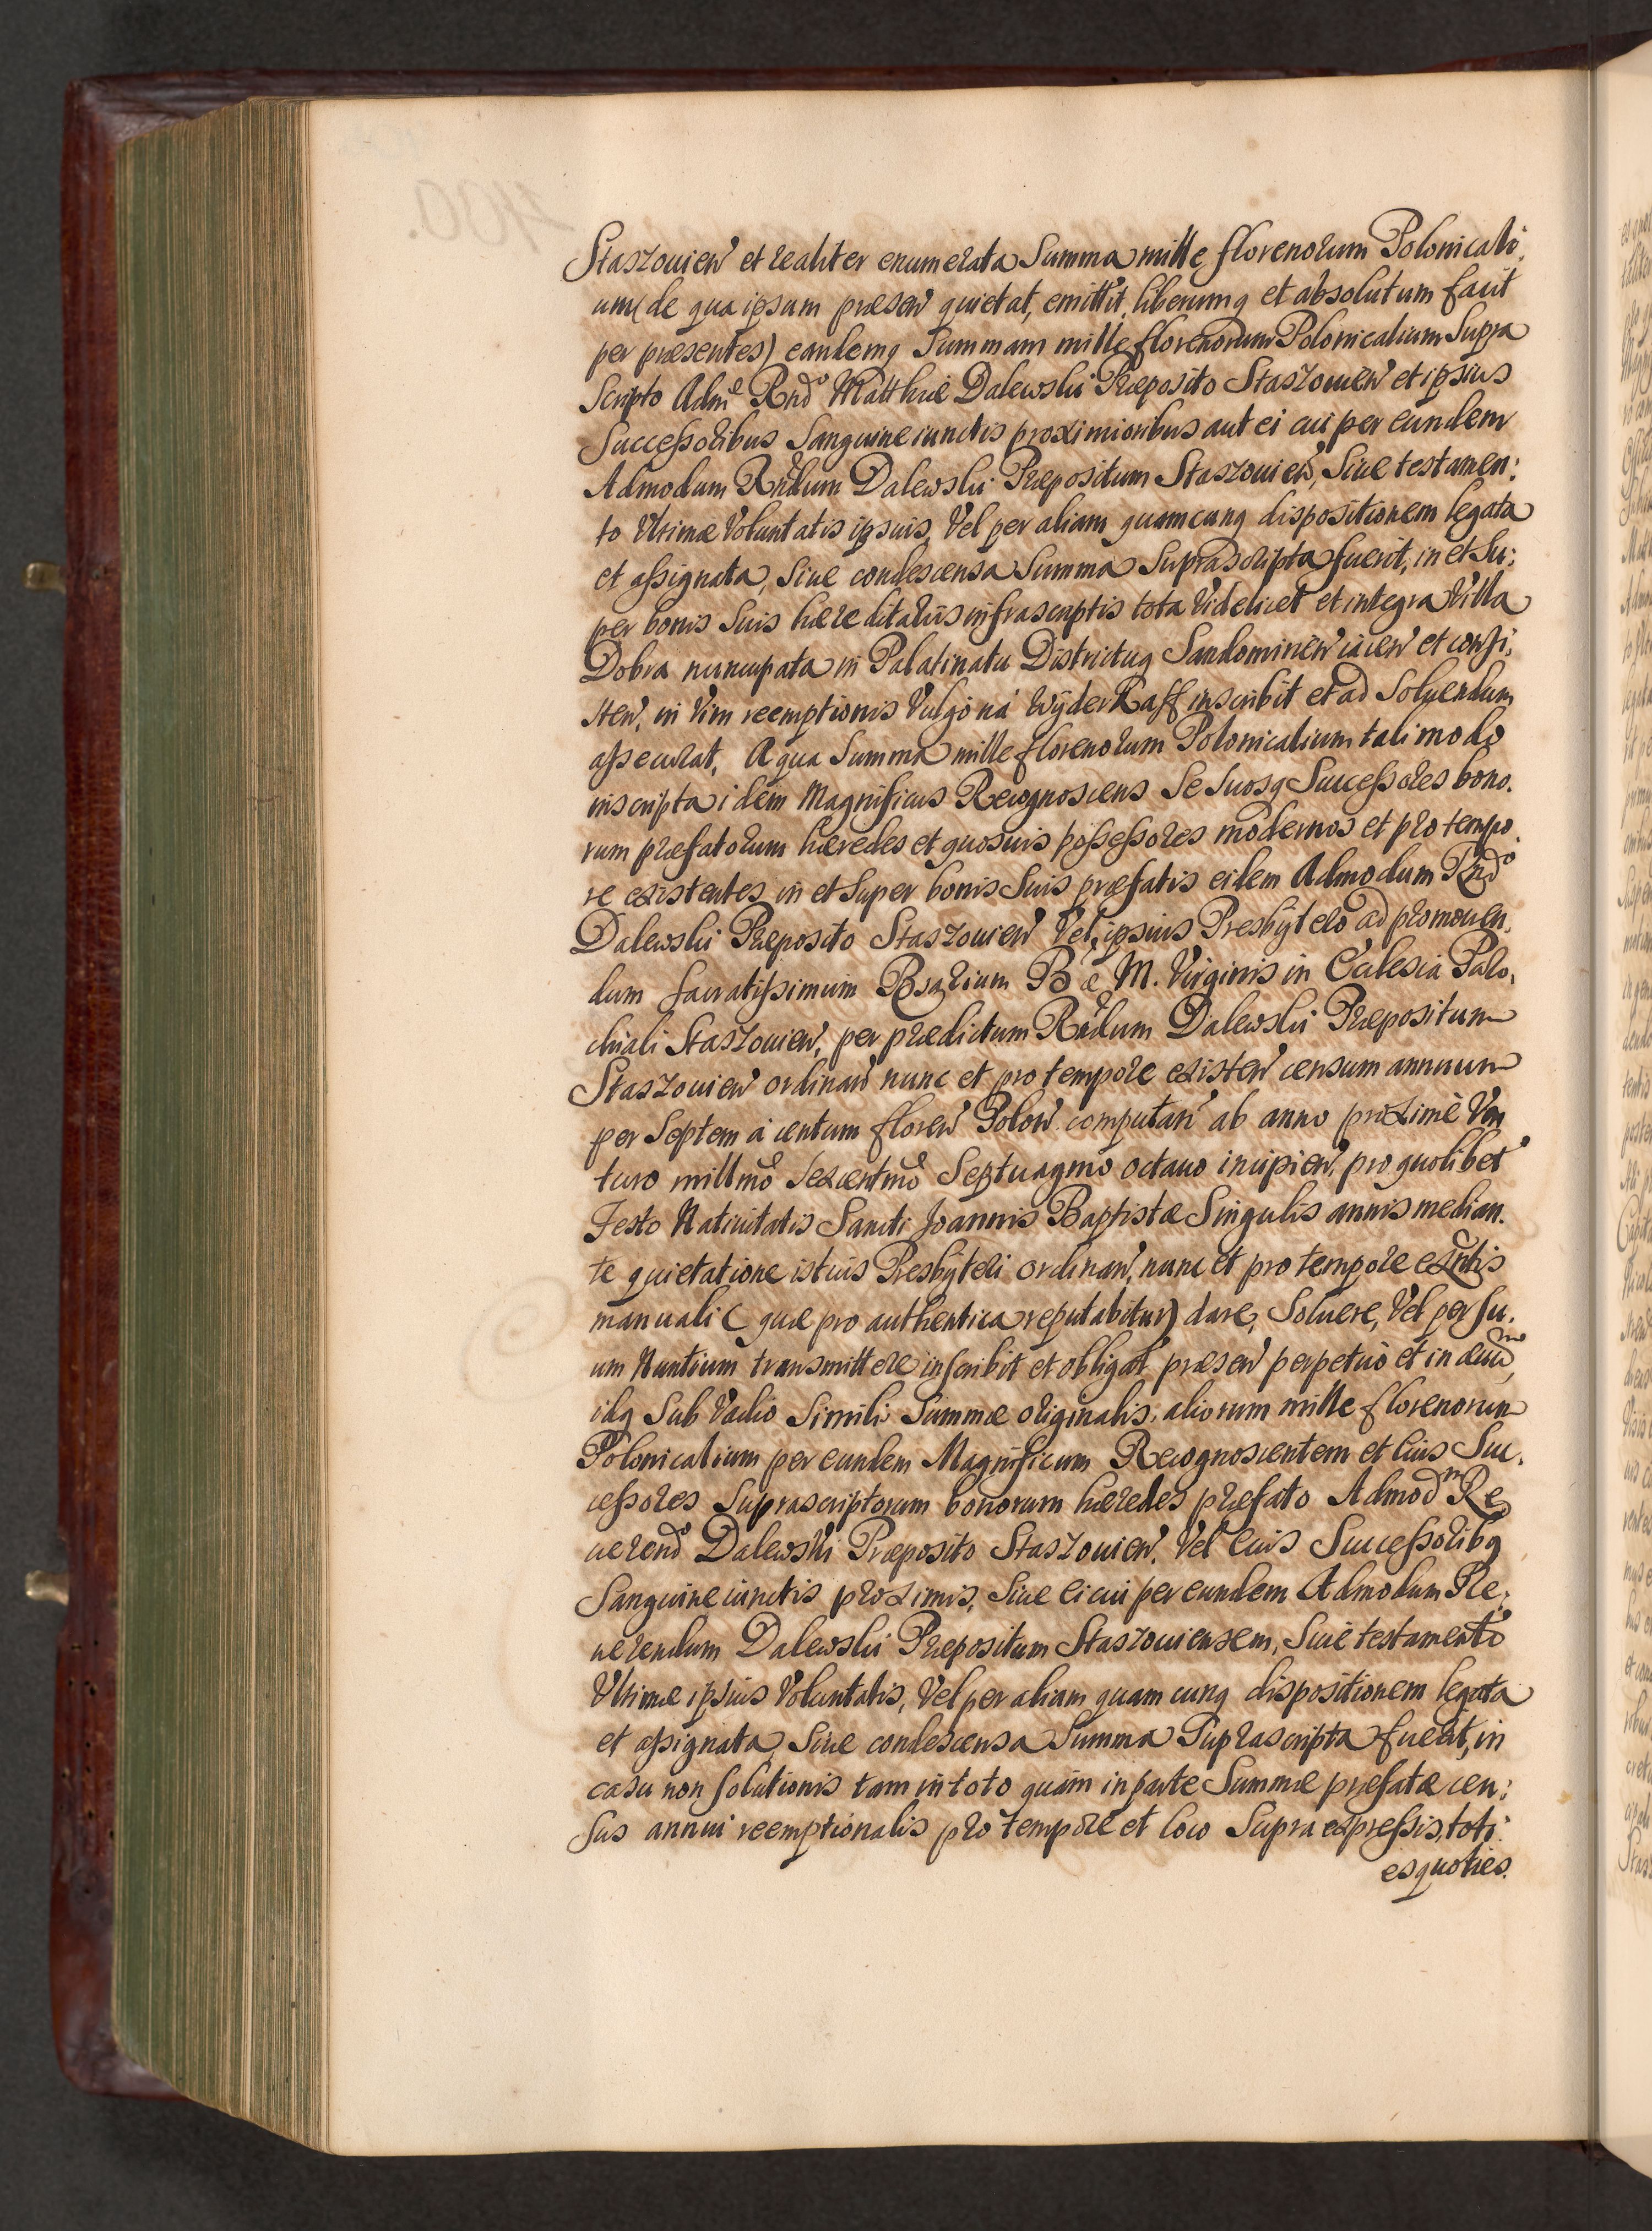 Staszouień et realiter enumerata Summa mille florenorum Polonicali;
um( de qua ipsum præseń quietat, emittit, liberumq et absolutum facit
per præsentes) eandemq Summam mille florenorum Polonicalium Supra
Scripto Adm̃o Rnd̃o Matthiæ Dalewski Præposito Staszouień et ipsius
Successoribus Sanguine iunctis proximioribus aut ei cui per eundem
Admodum Rñdum Dalewski Præpositum Staszouień, Siue testamen:
to Vltimæ Voluntatis ipsius, Vel per aliam quamcunq dispositionem legata
et assignata, Siue condescensa Summa Suprascripta fuerit, in et Su:
per bonis Suis hæreditariis infrascriptis tota Videlicet et integra Villa
Dobra nuncupata in Palatinatu Districtuq Sandomirień iaceń et consi:
steń, in Vim reemptionis Vulgo na Wÿderkaff inscribit et ad Soluendum
assecurat. A qua Summa mille florenorum Polonicalium tali modo
inscripta idem Magnificus Recognoscens Se Suosq Successores bono.
rum præfatorum hæredes et quosuis possessores modernos et pro tempo.
re existentes in et Super bonis Suis præfatis eidem Admodum Rnd̃o
Dalewski Præposito Staszouień Vel ipsius Presbÿtero ad promouen.
dum Sacratissimum Rosarium B æ M. Virginis in Ecclesia Paro.
chiali Staszouień, per prædictum Rñdum Dalewski Præpositum
Staszouień ordinań nunc et pro tempore existeń censum annuum
per Septem á centum floreń Poloń. computań ab anno proximè Ven
turo millm̃o Sexcentm̃o Septuagmo octauo incipień. pro quolibet
Festo Natiuitatis Sancti Joannis Baptistæ Singulis annis median.
te quietatione istius Presbÿteri ordinań, nunc et pro tempore exñtis
manuali ( quæ pro authentica reputabitur) dare, Soluere, Vel per Su.
um Nuntium transmittere inscribit et obligat præseń perpetuò et in æuũm,
idq Sub Vadio Simili Summæ originalis, aliorum mille florenorum
Polonicalium per eundem Magnificum Recognoscentem et Eius Suc.
cessores Suprascriptorum bonorum hæredes præfato Admodm Re
uerendo Dalewski Præposito Staszouień. Vel Eius Successoribq
Sanguine iunctis proximis, Siue Ei cui per eundem Admodum Re.
uerendum Dalewski Præpositum Staszouiensem, Siuè testamento
Vltimæ ipsius Voluntatis, Vel per aliam quamcunq dispositionem legata
et assignata, Siue condescensa Summa Suprascripta fuerit, in
casu non Solutionis tam in toto quàm in parte Summæ præfatæ cen:
sus annui reemptionalis pro tempore et loco Supra expressis, toti:
esquoties.